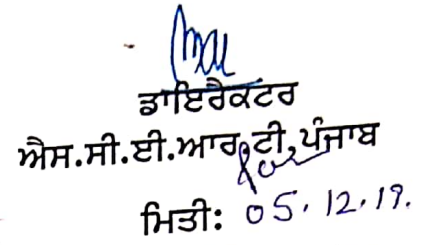 ਡਾਇਰੈਕਟਰ
ਐਸ.ਸੀ.ਈ.ਆਰ.ਟੀ,ਪੰਜਾਬ
ਮਿਤੀ: 05.12.19.